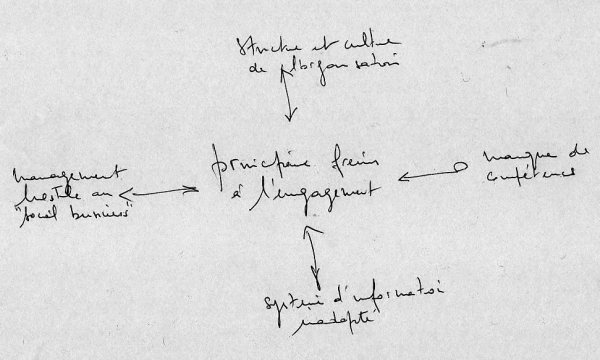 structure et culture
de l'organisation
principaux freins
à l'engagement
management
hostile au
"social business"
manque de
compétence
système d'information
inadapté